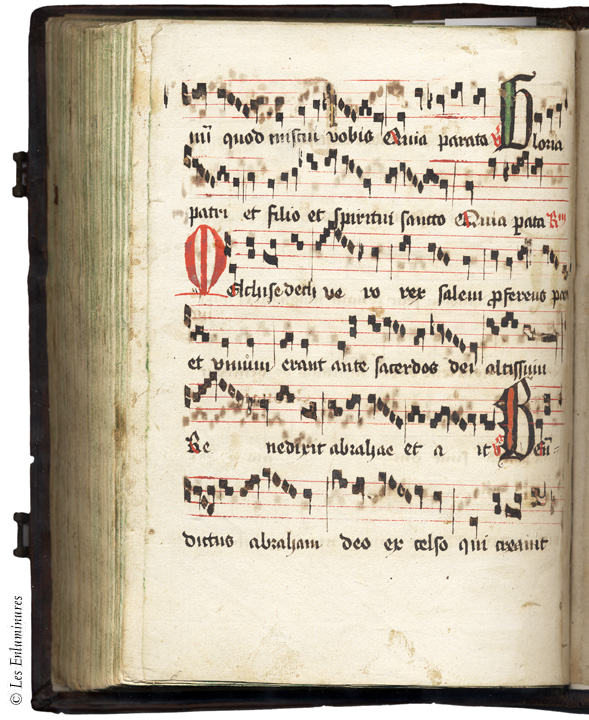 quod misitui vobis Quia parata ℣ Gloria
patri et filio et spiritui sancto Quia pata R
Melchisedech ve ro rex salem pferens pa
et vinum erant ante sacerdos dei altissimi
Be nedixit abrahae et a it ℣ Ben=
dictus abraham deo ex celso qui creauit
© Les Enluminures